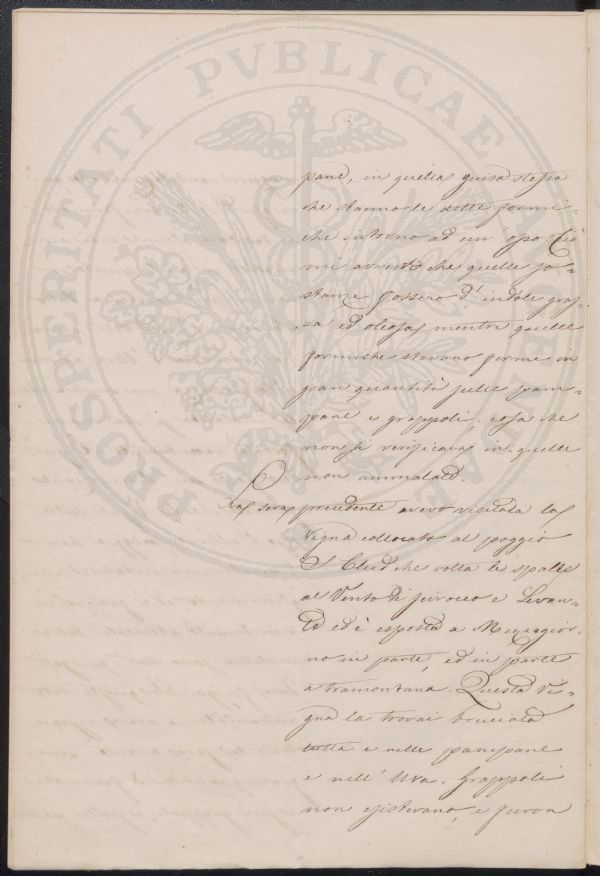 PROSPERITATI PVBLICAE
pane, in quella guisa stessa
che stanno le dette formi-
che intorno ad un' osso. Ciò
mi avvertì che quelle so-
stanze fossero d'indole gras-
sa ed oleosa, mentre quelle
formiche stavano ferme in
gran quantità sulle pam-
pane e grappoli, cosa che
non si verificava in quelle
non ammalate.
La sera precedente avevo visitata la
Vigna collocata al poggio
S. che volta le spalle
al Vento di scirocco e Levan-
te ed è esposta a Mezzogior-
no in parte, ed in parte
a tramontana. Questa Vi-
gna la trovai bruciata
tutta e nelle panpane
e nell' Uva. Grappoli
non esistevano, e furon